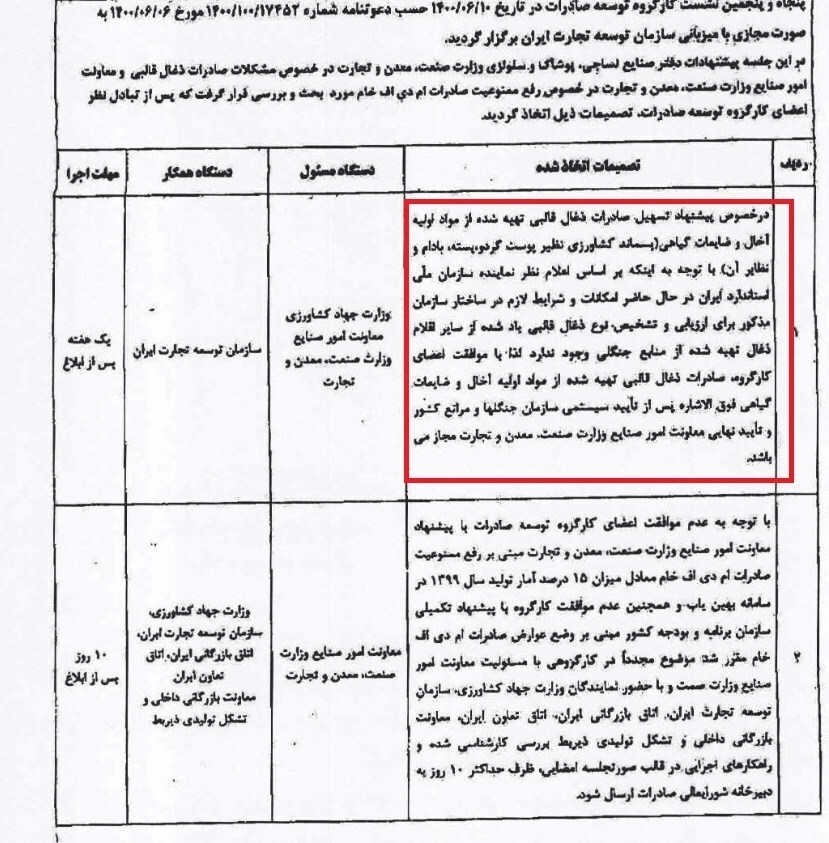 پنجاه و پنجمین نشست کارگروه توسعه صادرات در تاریخ ۱۴۰۰/۰۶/۱۰ حسب دعوتنامه شماره ۱۴۰۰/۱۰۰/۱۷۴۵۲ مورخ ۱۴۰۰/۰۶/۰۶ به
صورت مجازی با میزبانی سازمان توسعه تجارت ایران برگزار گردید.
در این جلسه پیشنهادات دفتر صنایع نساجی، پوشاک و سلولزی وزارت صنعت، معدن و تجارت در خصوص مشکلات صادرات ذغال قالبی و معاونت
امور صنایع وزارت صنعت، معدن و تجارت در خصوص رفع ممنوعیت صادرات ام دی اف خام مورد بحث و بررسی قرار گرفت که پس از تبادل نظر
اعضای کارگروه توسعه صادرات، تصمیمات ذیل اتخاذ گردید.
ردیف
تصمیمات اتخاذ شده
دستگاه مسئول
دستگاه همکار
مهلت اجرا
۱
درخصوص پیشنهاد تسهیل صادرات ذغال قالبی تهیه شده از مواد اولیه
آخال و ضایعات گیاهی(پسماند کشاورزی نظیر پوست گردو،پسته، بادام و
نظایر آن) با توجه به اینکه بر اساس اعلام نظر نماینده سازمان ملی
استاندارد ایران در حال حاضر امکانات و شرایط لازم در ساختار سازمان
مذکور برای ارزیابی و تشخیص نوع ذغال قالبی یاد شده از سایر اقلام
ذغال تهیه شده از منابع جنگلی وجود ندارد لذا با موافقت اعضای
کارگروه، صادرات ذغال قالبی تهیه شده از مواد اولیه آخال و ضایعات
گیاهی فوق الاشاره پس از تأیید سیستمی سازمان جنگلها و مراتع کشور
و تأیید نهایی معاونت امور صنایع وزارت صنعت، معدن و تجارت مجاز می
باشد.
وزارت جهاد کشاورزی
معاونت امور صنایع
وزارت صنعت، معدن و
تجارت
سازمان توسعه تجارت ایران
یک هفته
پس از ابلاغ
۲
با توجه به عدم موافقت اعضای کارگروه توسعه صادرات با پیشنهاد
معاونت امور صنایع وزارت صنعت، معدن و تجارت مبنی بر رفع ممنوعیت
صادرات ام دی اف خام معادل میزان ۱۵ درصد آمار تولید سال ۱۳۹۹ در
سامانه بهین یاب و همچنین عدم موافقت کارگروه با پیشنهاد تکمیلی
سازمان برنامه و بودجه کشور مبنی بر وضع عوارض صادرات ام دی اف
خام مقرر شد: موضوع مجدداً در کارگروهی با مسئولیت معاونت امور
صنایع وزارت صمت و با حضور نمایندگان وزارت جهاد کشاورزی، سازمان
توسعه تجارت ایران، اتاق بازرگانی ایران، اتاق تعاون ایران، معاونت
بازرگانی داخلی و تشکل تولیدی ذیربط بررسی کارشناسی شده و
راهکارهای اجرایی در قالب صورتجلسه امضایی، ظرف حداکثر ۱۰ روز به
دبیرخانه شورایعالی صادرات ارسال شود.
معاونت امور صنایع وزارت
صنعت، معدن و تجارت
وزارت جهاد کشاورزی،
سازمان توسعه تجارت ایران،
اتاق بازرگانی ایران، اتاق
تعاون ایران
معاونت بازرگانی داخلی و
تشکل تولیدی ذیربط
۱۰ روز
پس از ابلاغ
۱